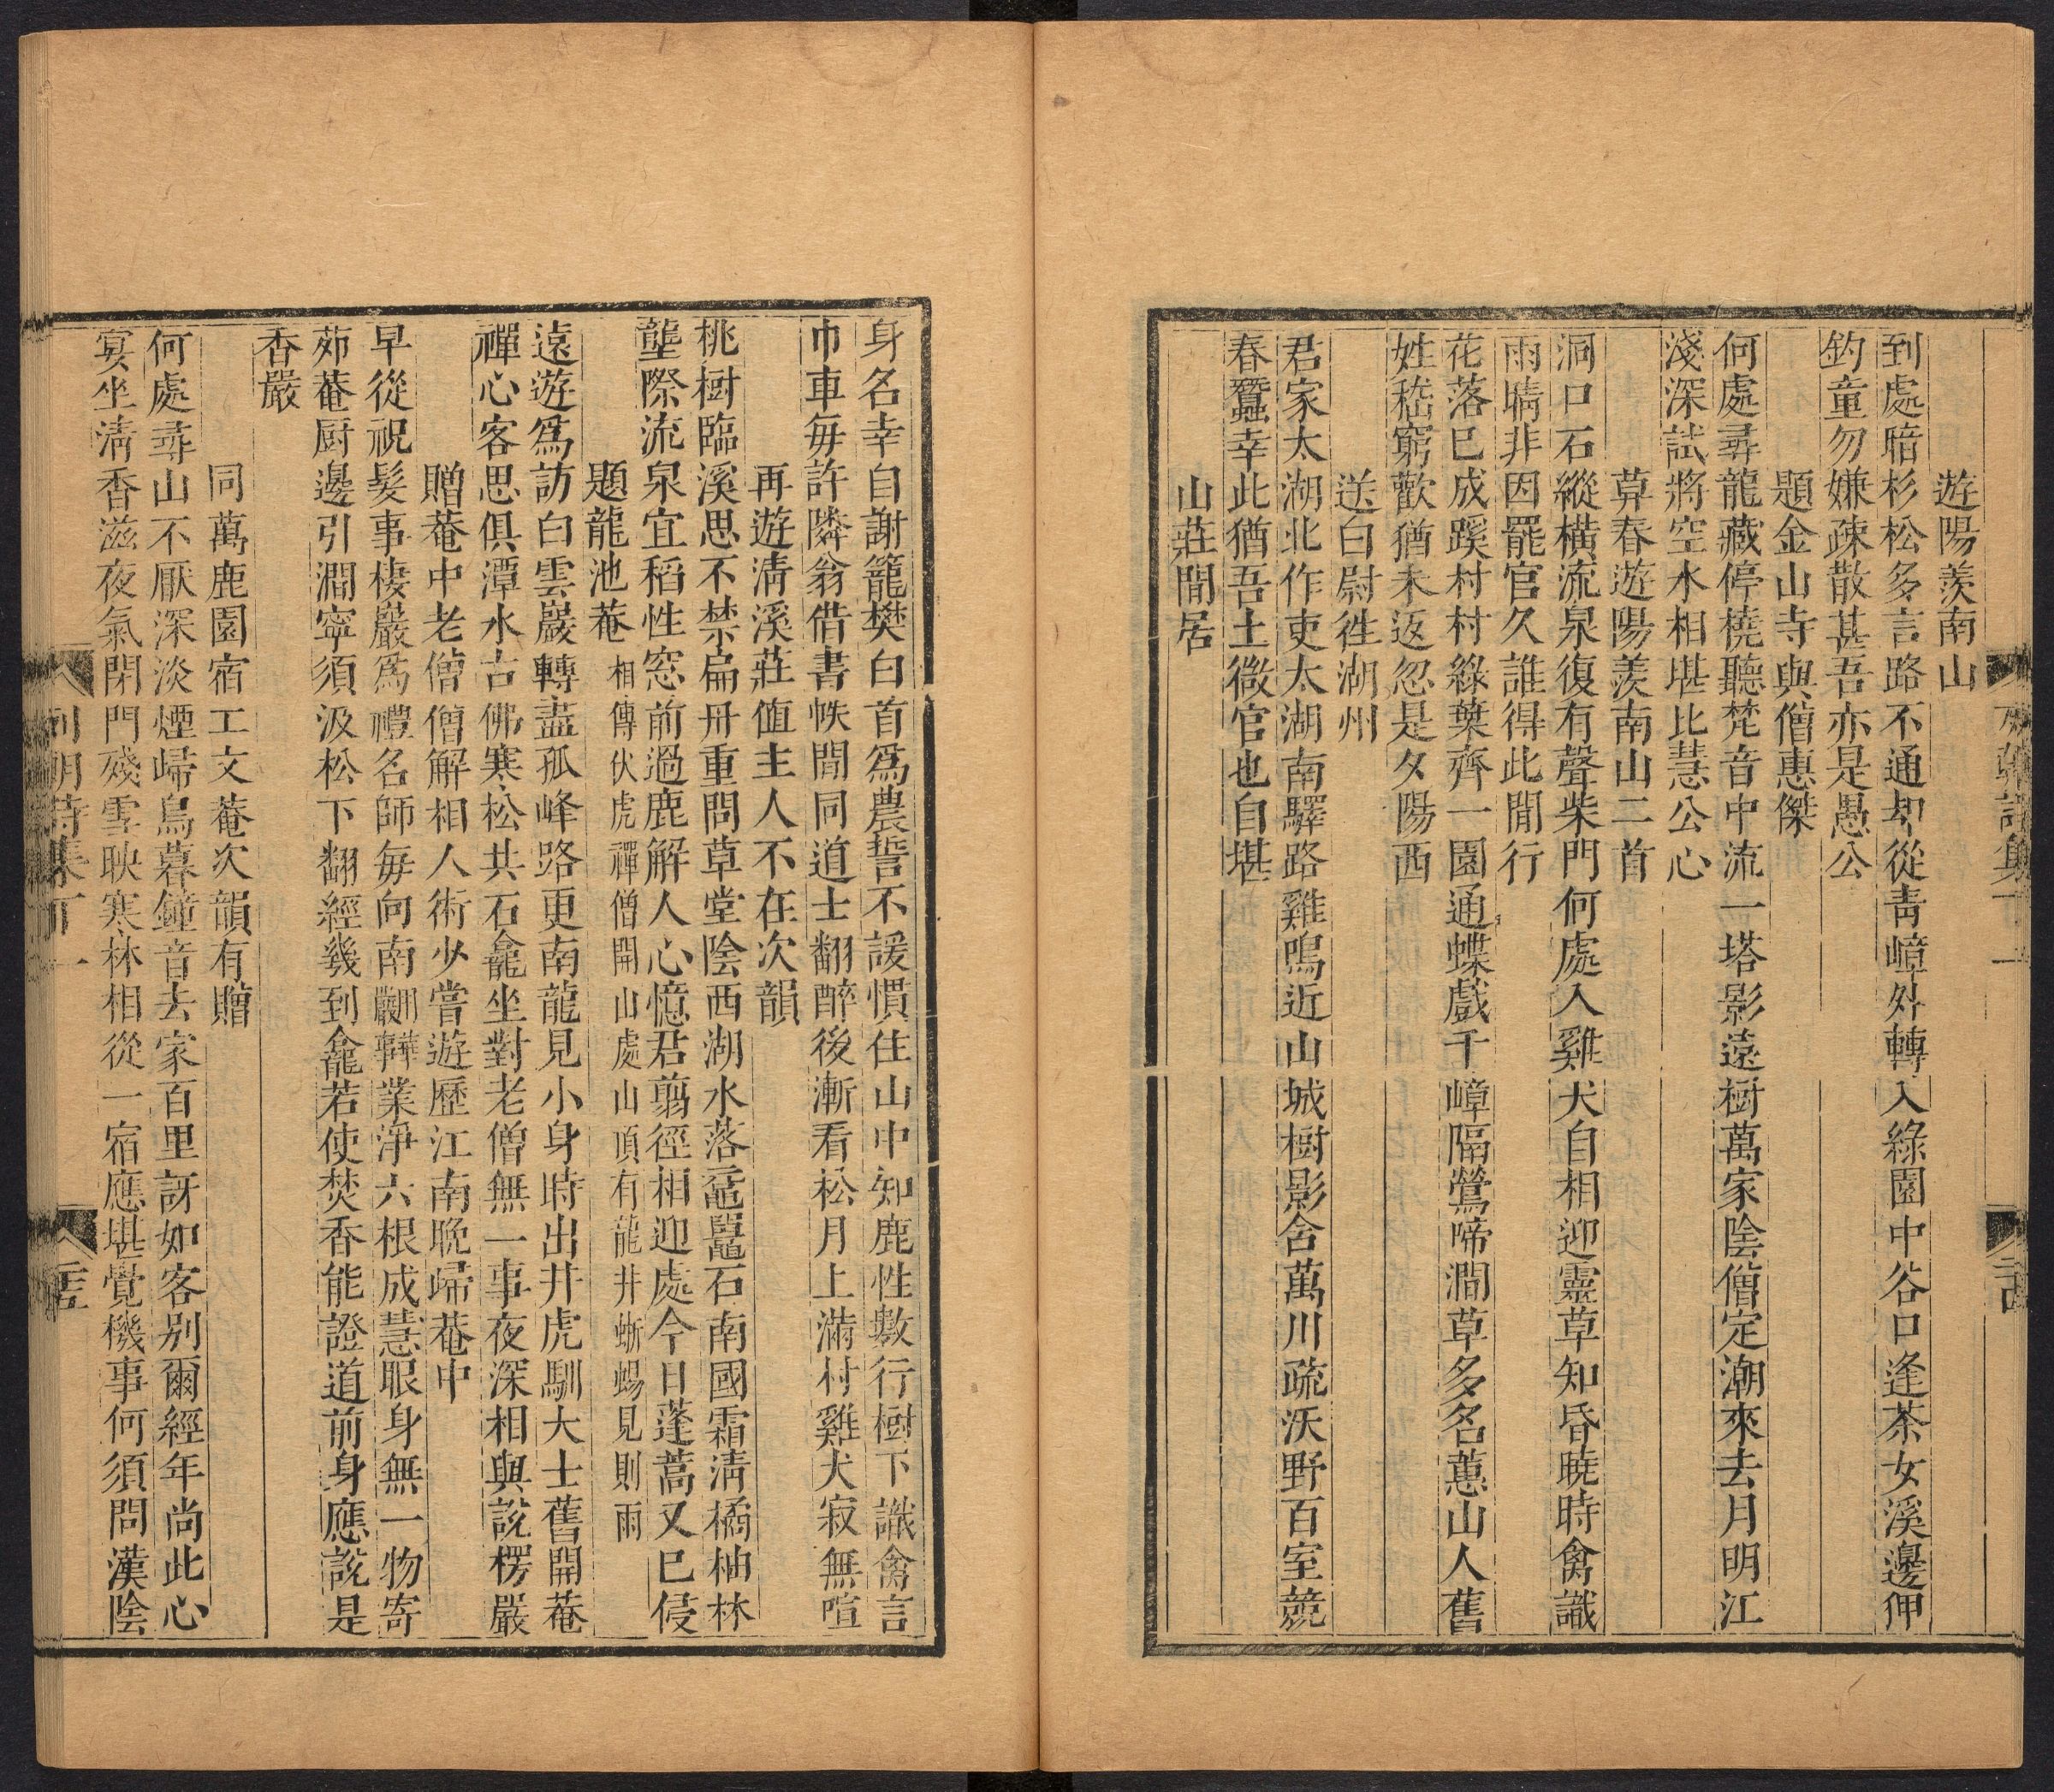 遊陽羨南山
到處暗杉松多言路不通却從靑嶂外轉入綠園中谷口逢茶女溪邊狎
釣童勿嫌疎散甚吾亦是愚公
題金山寺與僧惠傑
何處尋龍藏停橈聽梵音中流一塔影遠樹萬家陰僧定潮來去月明江
淺深試將空水相堪比慧公心
莫春遊陽羨南山二首
洞口石縱橫流泉復有聲柴門何處入雞犬自相迎靈草知昏曉時禽識
雨晴非因罷官久誰得此閒行
花落已成蹊村村綠葉齊一園通蝶戲千嶂隔鶯啼澗草多名蕙山人舊
姓嵇窮歡猶未返忽是夕陽西
送白尉徃湖州
君家太湖北作吏太湖南驛路雞鳴近山城樹影含萬川疏沃野百室競
春蠶幸此猶吾土微官也自堪
山莊閒居
身名幸自謝籠樊白首爲農誓不諼慣住山中知鹿性數行樹下識禽言
巾車每許隣翁借書帙閒同道士翻醉後漸看松月上滿村雞犬寂無喧
再遊淸溪莊値主人不在次韻
桃樹臨溪思不禁扁舟重問草堂陰西湖水落黿鼉石南國霜淸橘柚林
壟際流泉宜稻性窓前過鹿解人心憶君翦徑相迎處今日蓬蒿又已侵
題龍池菴相傳伏虎禪僧開山處山頂有龍井蜥蜴見則雨
遠遊爲訪白雲巖轉盡孤峰路更南龍見小身時出井虎馴大士舊開菴
禪心客思俱潭水古佛寒松共石龕坐對老僧無一事夜深相與說楞嚴
贈菴中老僧僧解相人術少嘗遊歷江南晚歸菴中
早從祝髮事棲巖爲禮名師每向南閱華嚴事業淨六根成慧眼身無一物寄
茆菴厨邊引澗寧須汲松下翻經幾到龕若使焚香能證道前身應說是
香嚴
同萬鹿園宿工文菴次韻有贈
何處尋山不厭深淡煙歸鳥暮鐘音去家百里訝如客別爾經年尚此心
宴坐淸香滋夜氣閉門殘雪映寒林相從一宿應堪覺機事何須問漢陰
列朝詩集丁一